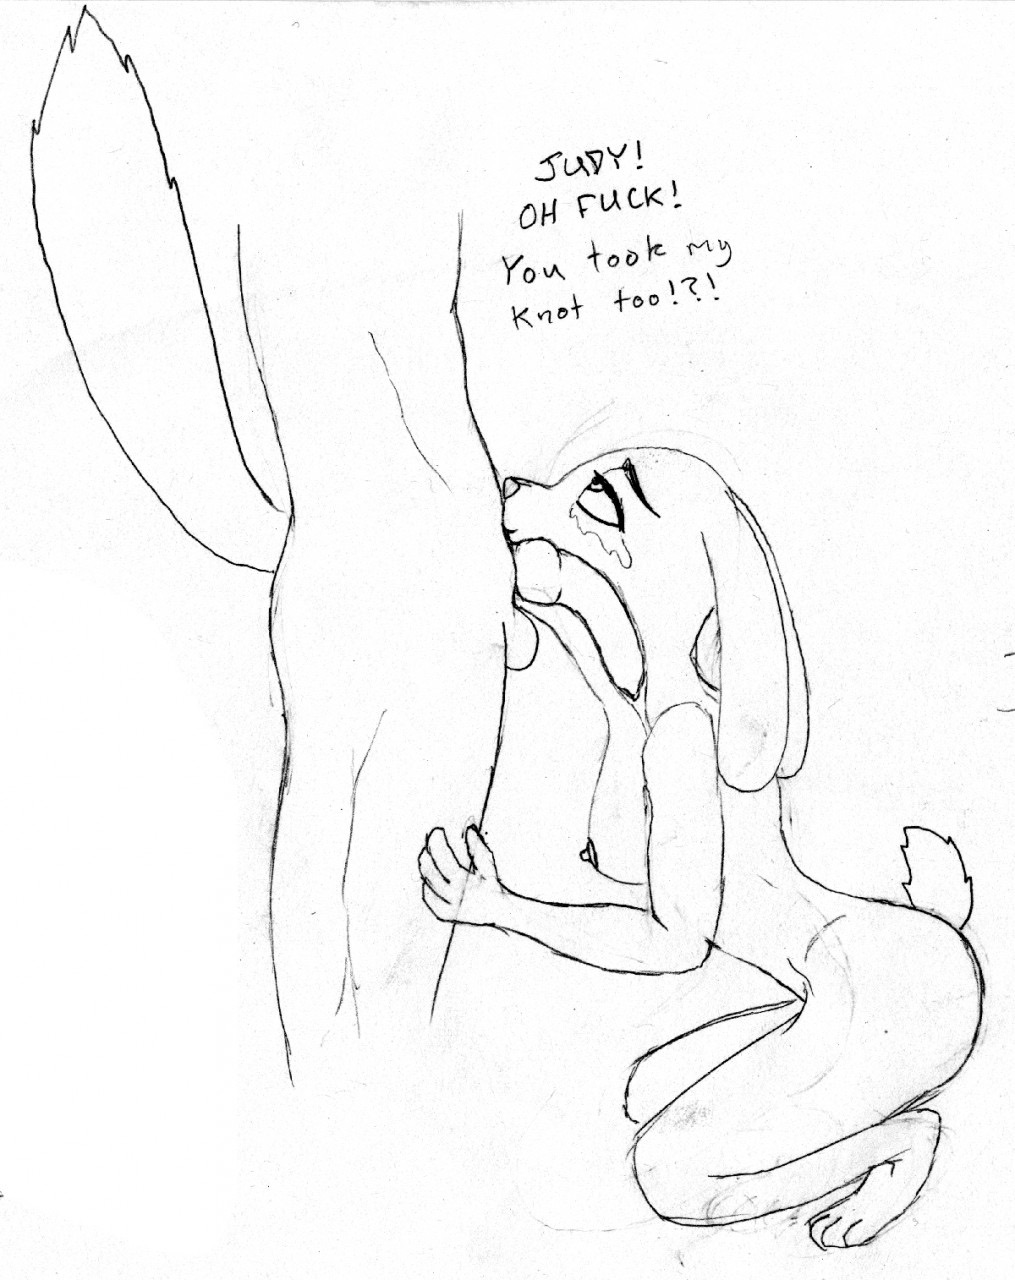 JUDY!
OH FUCK!
You took my
knot too!?!